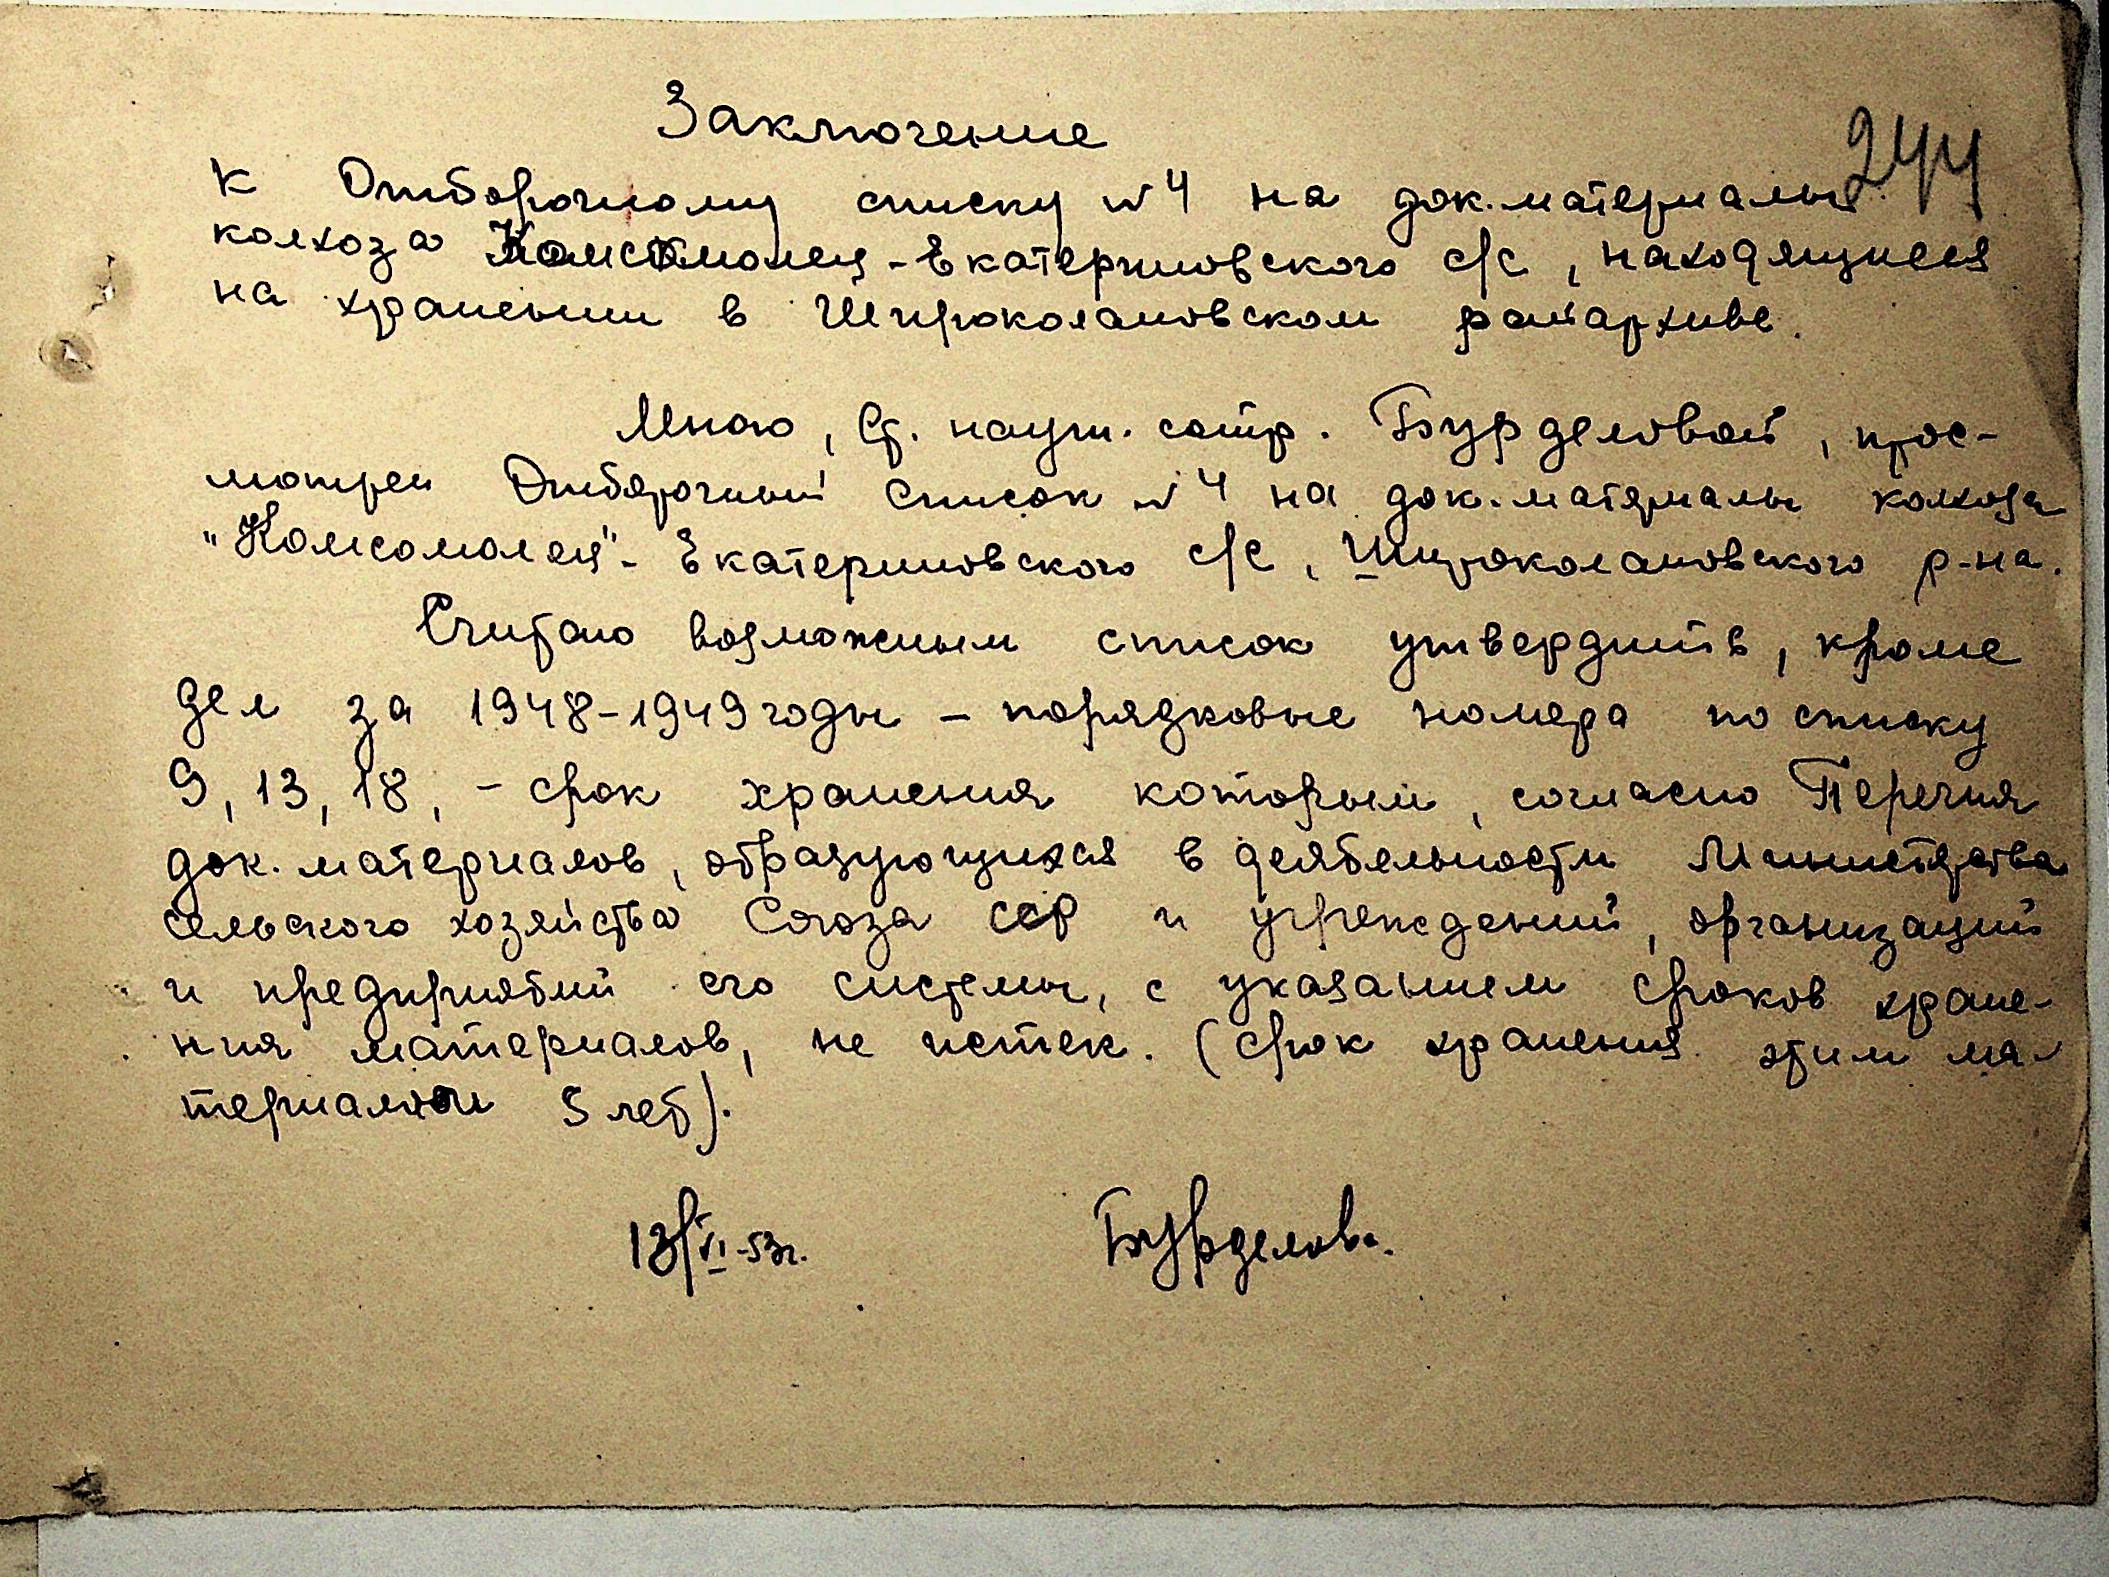 Заключение
244
к Отборочному списку №4 на док.материалы
колхоза Комсомолец - Екатериновского с/с, находящиеся
на хранении в Широколановском райархиве.
Мною, Ст. научн. сотр. Бурделовой, прос-
мотрен Отборочный список №4 на док.материалы колхоза
"Комсомолец" - Екатериновского с/с, Широколановского р-на.
Считаю возможным список утвердить, кроме
дел за 1948-1949 годы - порядковые номера по списку
9, 13, 18, - срок хранения которым, согласно Перечня
док. материалов, образующихся в деятельности Министерства
сельского хозяйства Союза ССР и учреждений, организаций
и предприятий его системы, с указанием сроков хране-
ния материалов, не истек. (срок хранения этим ма-
териалам 5 лет).
13/VI-53г. Бурделова.